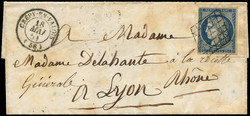 CRÉPY-EN-VALOIS
18
MAI
51
(58)
à Madame
Madame Delahante à la Recette
Générale
à Lyon Rhône